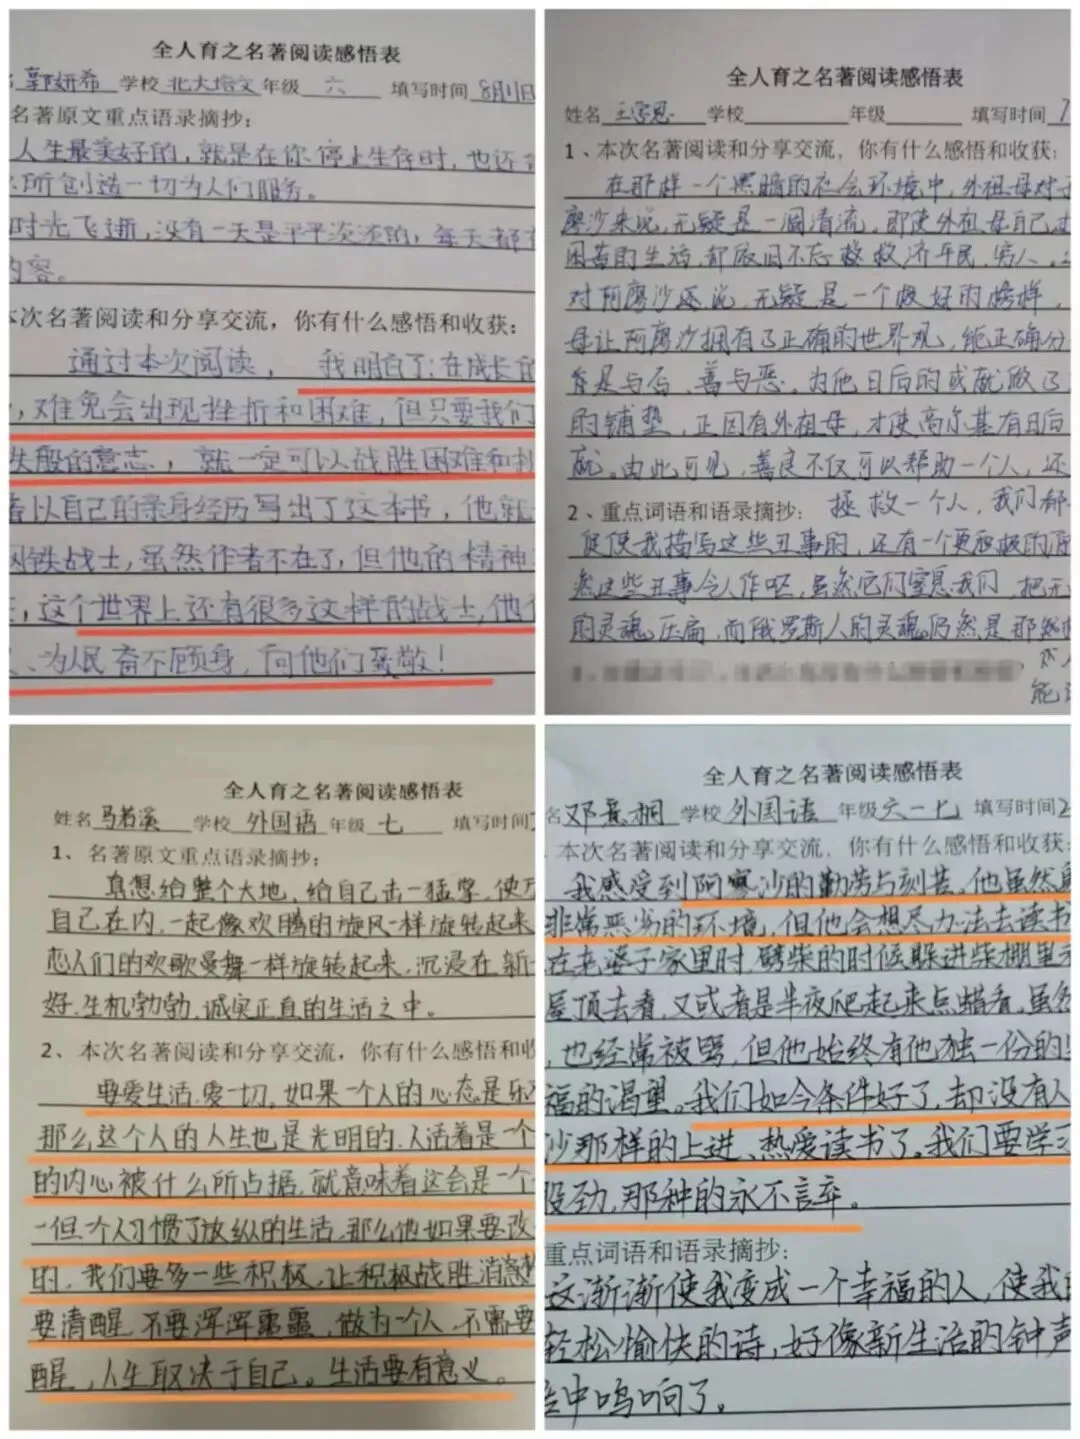 全人育之名著阅读感悟表
郭妍希 学校 北大培文 年级 六 填写时间 8月11日
名著原文重点语录摘抄：
人生最美好的，就是在你停止生存时，也还
所创造一切为人们服务。
时光飞逝，没有一天是平平淡淡的，每天都
内容。
本次名著阅读和分享交流，你有什么感悟和收获：
通过本次阅读，我明白了：在成长
，难免会出现挫折和困难，但只要我们
铁般的意志，就一定可以战胜困难和
者以自己的亲身经历写出了这本书，他就
钢铁战士，虽然作者不在了，但他的精神
，这个世界上还有很多这样的战士，他
、为人民奋不顾身，向他们致敬！
全人育之名著阅读感悟表
姓名 王学思 学校 年级 填写时间 7
1、本次名著阅读和分享交流，你有什么感悟和收获：
在那样一个黑暗的社会环境中，外祖母对于
廖沙来说，无疑是一阔清流，即使外祖母自己
困苦的生活，却依旧不忘拯救济平民，穷人。
对阿廖沙还说，无疑是一个极好的榜样，
母让阿廖沙拥有了正确的世界观，能正确分
是与否、善与恶。为他日后的成就做了
的铺垫，正因有外祖母，才使高尔基有日后
就。由此可见，善良不仅可以帮助一个人，还
拯救一个人，我们都
2、重点词语和语录摘抄：
促使我描写这些丑事的，还有一个更积极的原
然这些丑事令人作呕，虽然它们窒息我们，把无
的灵魂压扁，而俄罗斯人的灵魂仍然是那然
能
全人育之名著阅读感悟表
姓名 马若溪 学校 外国语 年级 七 填写时间
1、名著原文重点语录摘抄：
真想给整个大地，给自己击一猛掌，使万
自己在内，一起像欢腾的旋风一样旋转起来
恋人们的欢歌曼舞一样旋转起来，沉浸在新
好、生机勃勃、诚实正直的生活之中。
2、本次名著阅读和分享交流，你有什么感悟和收
要爱生活，爱一切，如果一个人的心态是乐
那么这个人的人生也是光明的，人活着是一个
的内心被什么所占据，就意味着这会是一个
一但个人习惯了放纵的生活，那么他如果要改
的，我们要多一些积极，让积极战胜消极
要清醒，不要浑浑噩噩，做为一个人，不需要
醒，人生取决于自己。生活要有意义。
全人育之名著阅读感悟表
名 邓意桐 学校 外国语 年级 六一七 填写时间 2
本次名著阅读和分享交流，你有什么感悟和收获：
我感受到阿寥沙的勤劳与刻苦。他虽然
非常恶劣的环境，但他会想尽办法去读书
在老婆子家里时，劈柴的时候躲进柴棚里
屋顶去看，又或者是半夜爬起来点蜡看，虽然
，也经常被骂，但他始终有他独一份的
福的渴望。我们如今条件好了，却没有人
沙那样的上进、热爱读书了。我们要学
股劲，那种的永不言弃。
重点词语和语录摘抄：
这渐渐使我变成一个幸福的人，使我
轻松愉快的诗，好像新生活的钟声
中鸣响了。